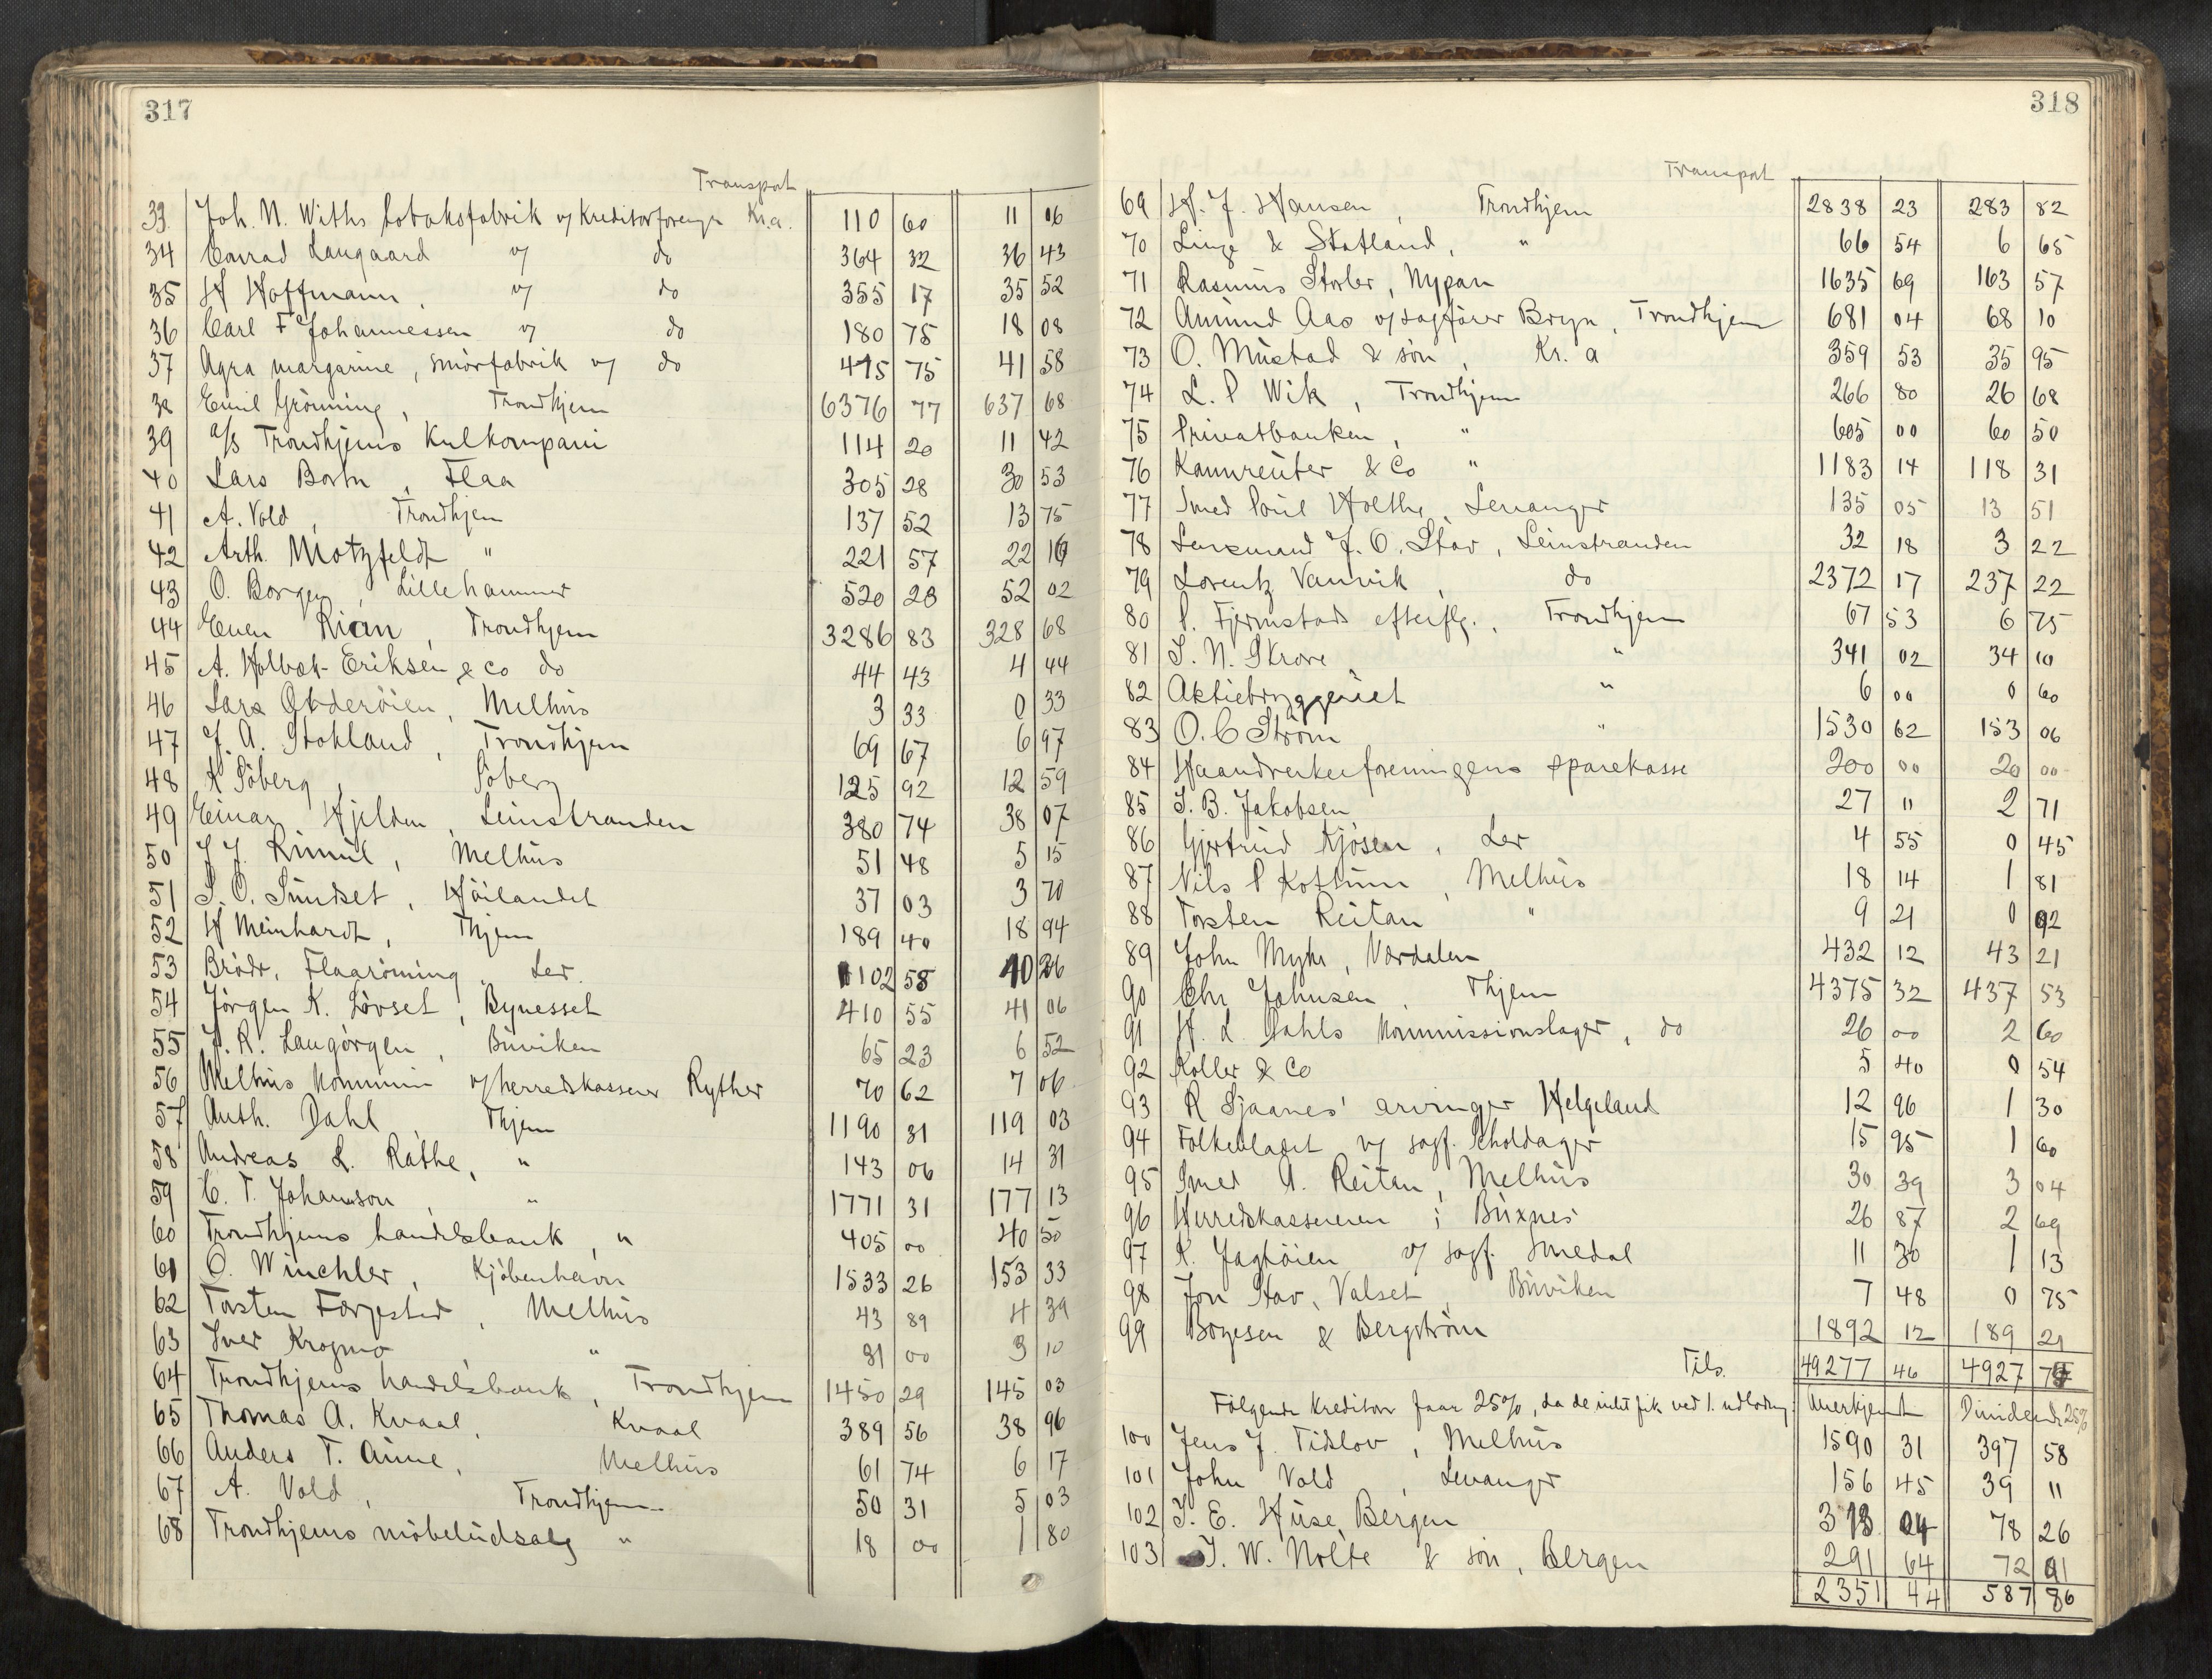 317
Transport
33 Joh. N. Withs tobaksfabrik v/ Kreditorforengn Kr.a. 110 60 11 06
34 Conrad Langaard v/ do 364 32 36 43
35 H Hoffmann, v/ do 355 17 35 52
36 Carl F Johannessen v/ do 180 75 18 08
37 Agra margarine, smörfabrik v/ do 415 75 41 58
38 Emil Grönning, Trondhjem 6376 77 637 68
39 a/s Trondhjems Kulkompani 114 20 11 42
40 Lars Bortn, Flaa 305 28 30 53
41 A. Vold, Trondhjem 137 52 13 75
42 Arth. Motzfeldt " 221 57 22 16
43 O. Borgen, Lillehammer 520 23 52 02
44 Even Rian, Trondhjem 3286 83 328 68
45 A. Holbæk-Eriksen & co do 44 43 4 44
46 Lars, Melhus 3 33 0 33
47 J. A. Stokland, Trondhjem 69 67 6 97
48 K Söberg, Söberg 125 92 12 59
49 Einar Hjelden, Leinstranden 380 74 38 07
50 J J. Rimul, Melhus 51 48 5 15
51 S. O. Sundset, Höilandet 37 03 3 70
52 H Meinhardt, Thjem 189 40 18 94
53 Brödr. Flaaröning, Ler. 102 58 10 26
54 Jörgen K. Lövset, Bynesset 410 55 41 06
55 J. R. Langörgen, Buviken 65 23 6 52
56 Melhus Kommun v/ herredskasserer Ryther 70 62 7 06
57 Anth. Dahl, Thjem 1190 31 119 03
58 Andreas L. Rathe, " 143 06 14 31
59 C. T. Johannson, " 1771 31 177 13
60 Trondhjems handelsbank, " 405 00 40 50
61 O. Winchler, Kjöbenhavn 1533 26 153 33
62 Torsten Færgestad, Melhus 43 89 4 39
63 Iver Krogmo " 31 00 3 10
64 Trondhjems handelsbank, Trondhjem 1450 29 145 03
65 Thomas A. Kvaal, Kvaal 389 56 38 96
66 Anders T. Aune, Melhus 61 74 6 17
67 A. Vold, Trondhjem 50 31 5 03
68 Trondhjems möbeludsalg " 18 00 1 80
318
Transport
69 H. J. Hansen, Trondhjem 2838 23 283 82
70 Linge & Statland, " 66 54 6 65
71 Rasmus Storler, Nypan 1635 69 163 57
72 Amund Aas v/ sagförer Bryn, Trondhjem 681 04 68 10
73 O. Mustad & sön, Kr. a 359 53 35 95
74 L. P Wik, Trondhjem 266 80 26 68
75 Privatbanken, " 605 00 60 50
76 Kannreuter & Co " 1183 14 118 31
77 Smed Paul Holthe, Levanger 135 05 13 51
78 Lensmand J. O. Stav, Leinstranden 32 18 3 22
79 Lorentz Vannvik, do 2372 17 237 22
80 P. Fjermstads efterflg., Trondhjem 67 53 6 75
81 S. N. Skrove, " 341 02 34 10
82 Aktiebryggeriet " 6 00 0 60
83 O. C Ström " 1530 62 153 06
84 Haandverkerforeningens sparekasse 200 00 20 00
85 S. B. Jakobsen 27 11 2 71
86 Gjertrud Kjösen, Ler 4 55 0 45
87 Nils P Kottum, Melhus 18 14 1 81
88 Torsten Reitan " 9 21 0 92
89 John Myhr, Værdalen 432 12 43 21
90 Chr Johnsen, Thjem 4375 32 437 53
91 H. L. Dahls Kommissionslager, do 26 00 2 60
92 Koller & Co 5 40 0 54
93 R Sjaanes' arvinger Helgeland 12 96 1 30
94 Folkebladet v/ sagf. Scholdager 15 95 1 60
95 Smed A. Reitan, Melhus 30 39 3 04
96 Herredskassereren i Buxnes 26 87 2 69
97 K. Jagtöien v/ sagf. Smedal 11 30 1 13
98 Jon Stav, Valset, Buviken 7 48 0 75
99 Boyesen & Bergström 1892 12 189 21
Tils. 49277 46 4927 75
Fölgende kreditorer faar 25%, da de intet fik ved 1. udlodng: Anerkjendt Dividende 25%
100 Jens J. Tidslov, Melhus 1590 31 397 58
101 John Vold, Levanger 156 45 39 11
102 J. E. Huse, Bergen 313 04 78 26
103 J. W. Nolte & sön, Bergen 291 64 72 91
2351 44 587 86